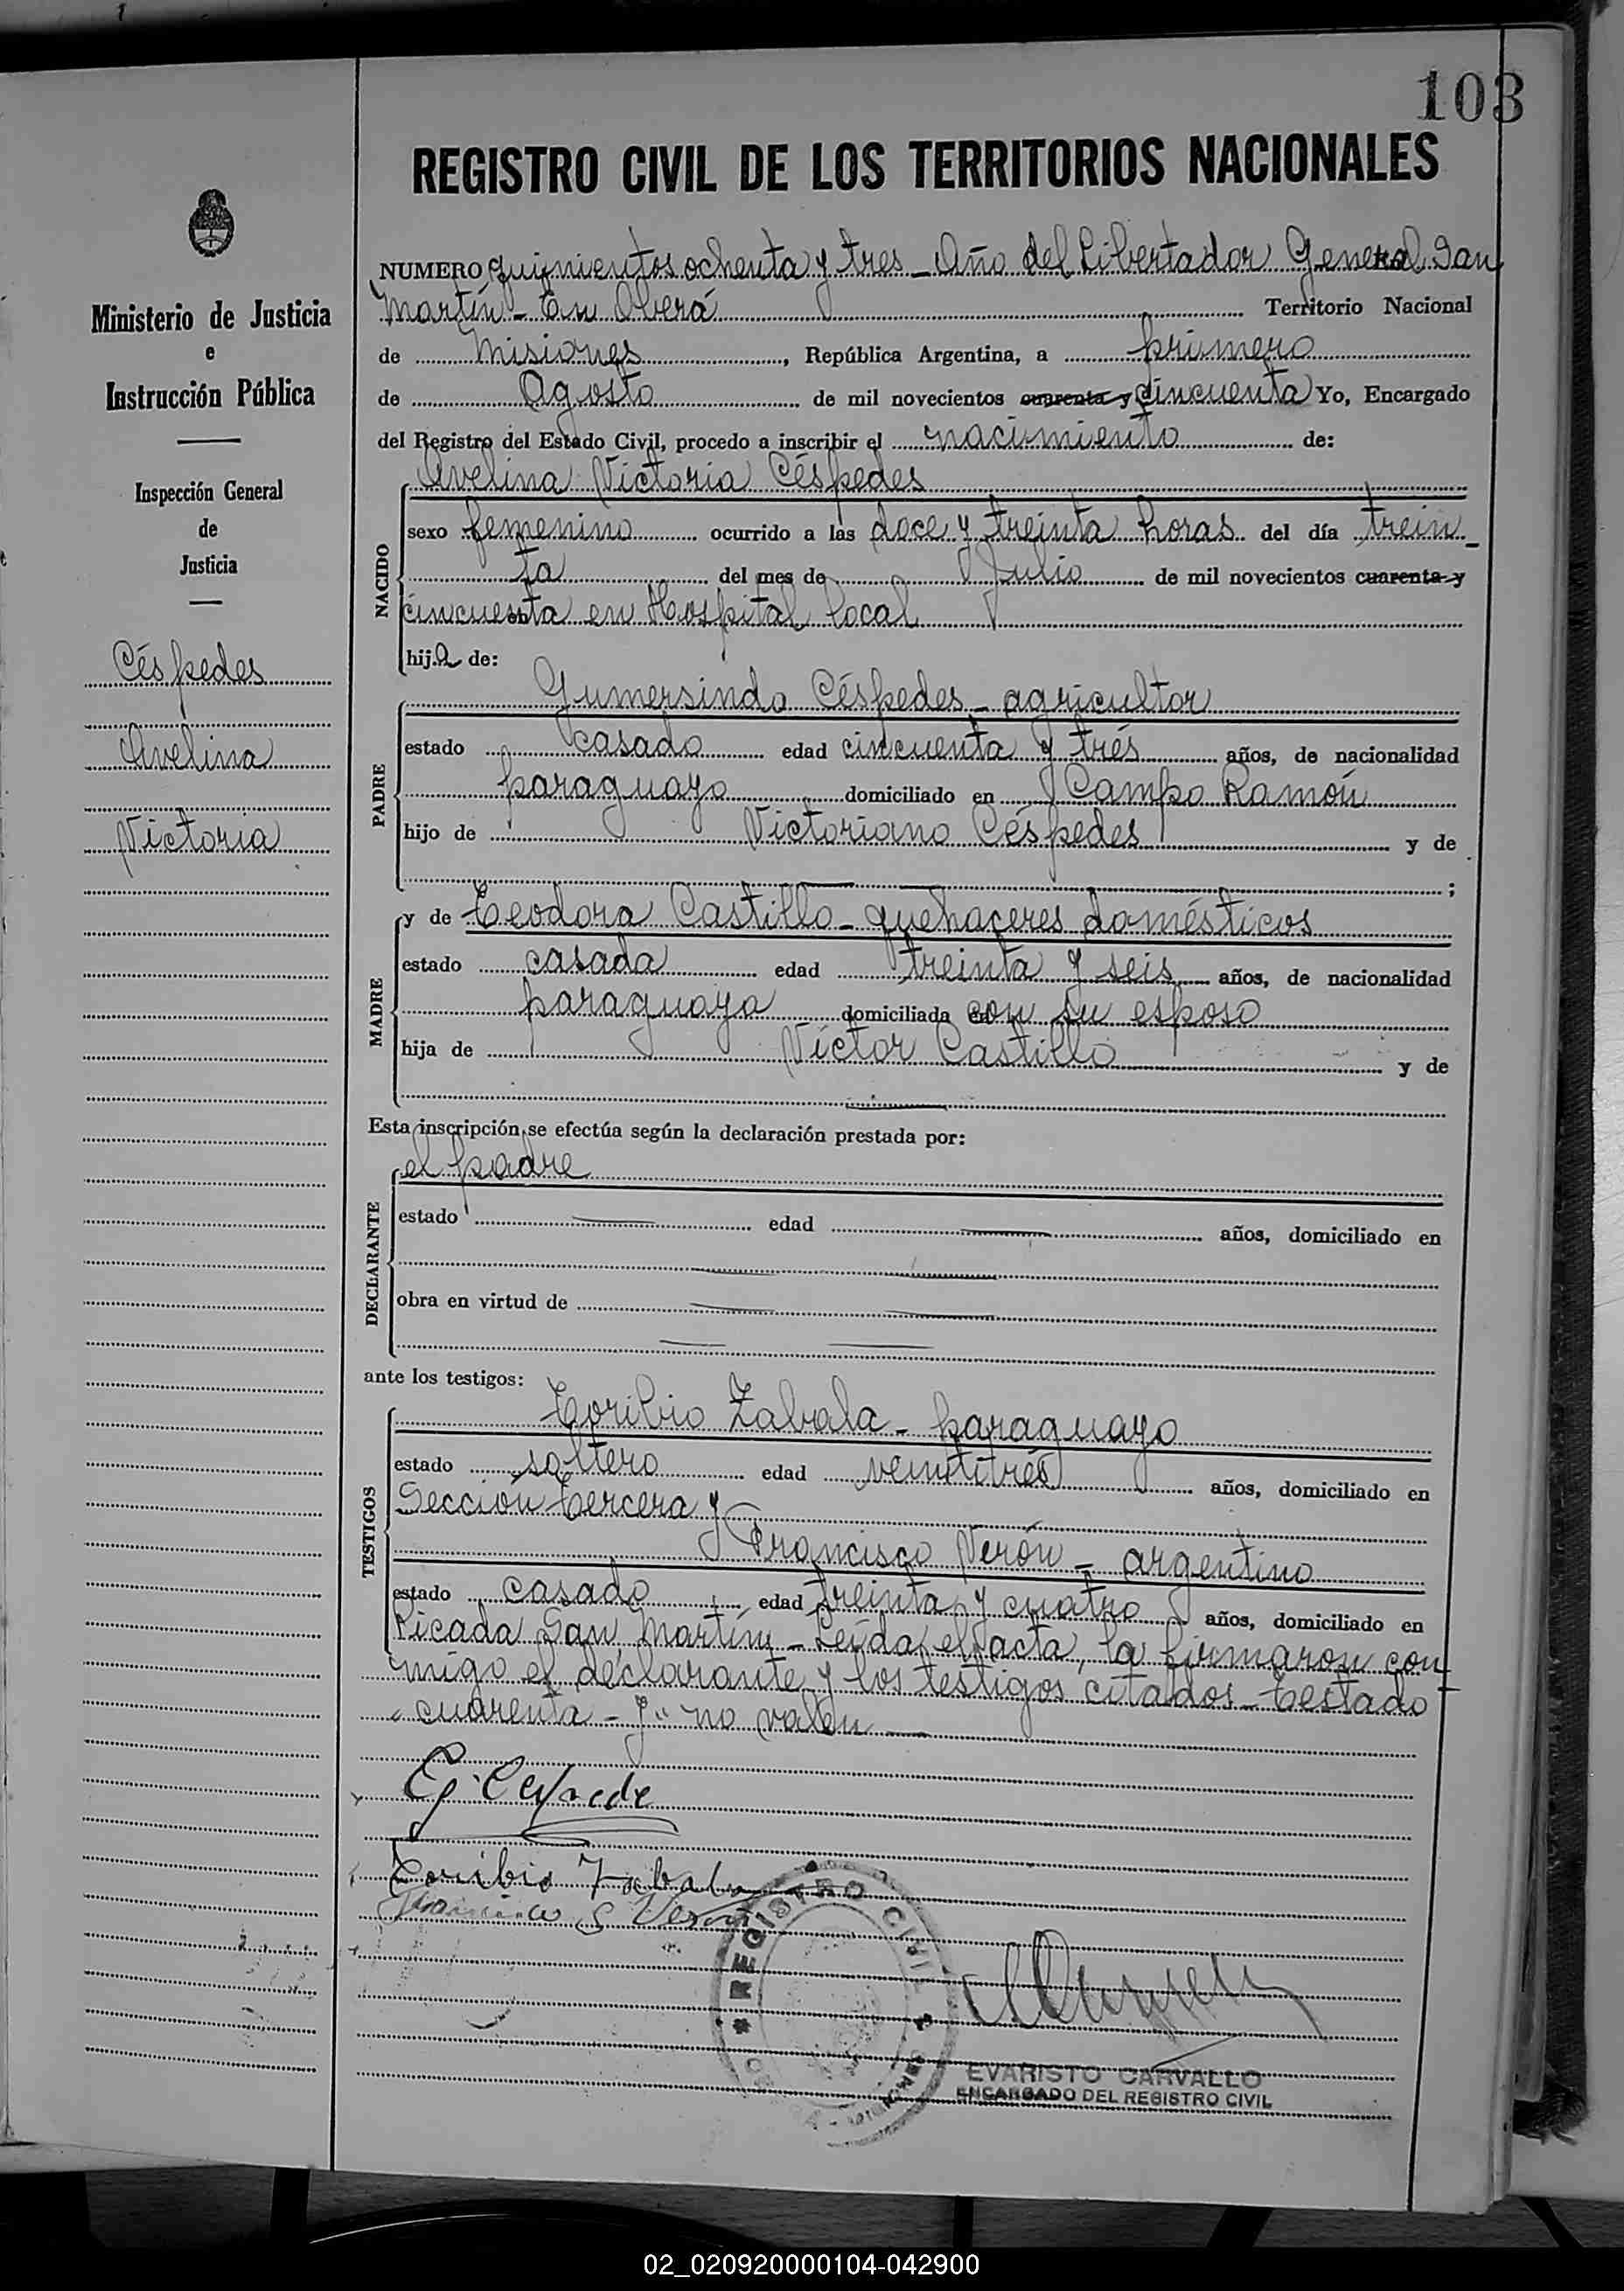 103
REGISTRO CIVIL DE LOS TERRITORIOS NACIONALES
Ministerio de Justicia
e
Instrucción Pública
Inspección General
de
Justicia
Céspedes
Avelina
Victoria
NUMERO quinientos ochenta y tres - Año del Libertador General San
Martín - En Oberá Territorio Nacional
de Misiones, República Argentina, a primero
de Agosto de mil novecientos cuarenta y cincuenta Yo, Encargado
del Registro del Estado Civil, procedo a inscribir el nacimiento de:
Avelina Victoria Céspedes
NACIDO
sexo femenino ocurrido a las doce y treinta horas del día trein-
ta del mes de Julio de mil novecientos cuarenta y
cincuenta en Hospital local
hija de:
Gumersindo Céspedes - agricultor
PADRE
estado casado edad cincuenta y trés años, de nacionalidad
paraguayo domiciliado en Campo Ramón
hijo de Victoriano Céspedes y de
;
y de Teodora Castillo - quehaceres domésticos
MADRE
estado casada edad treinta y seis años, de nacionalidad
paraguaya domiciliada con su esposo
hija de Víctor Castillo y de
Esta inscripción se efectúa según la declaración prestada por:
el padre
DECLARANTE
estado edad años, domiciliado en
obra en virtud de
ante los testigos:
Toribio Zabala - paraguayo
TESTIGOS
estado soltero edad veintitrés años, domiciliado en
Sección Tercera y
Francisco Verón - argentino
estado casado edad treinta y cuatro años, domiciliado en
Picada San Martín - Leída el acta, la firmaron con
migo el declarante y los testigos citados - Testado
"cuarenta - y" no valen
Toribio Zabala
Francisco S Verón
REGISTRO CIVIL
EVARISTO CARVALLO
ENCARGADO DEL REGISTRO CIVIL
02_020920000104-042900